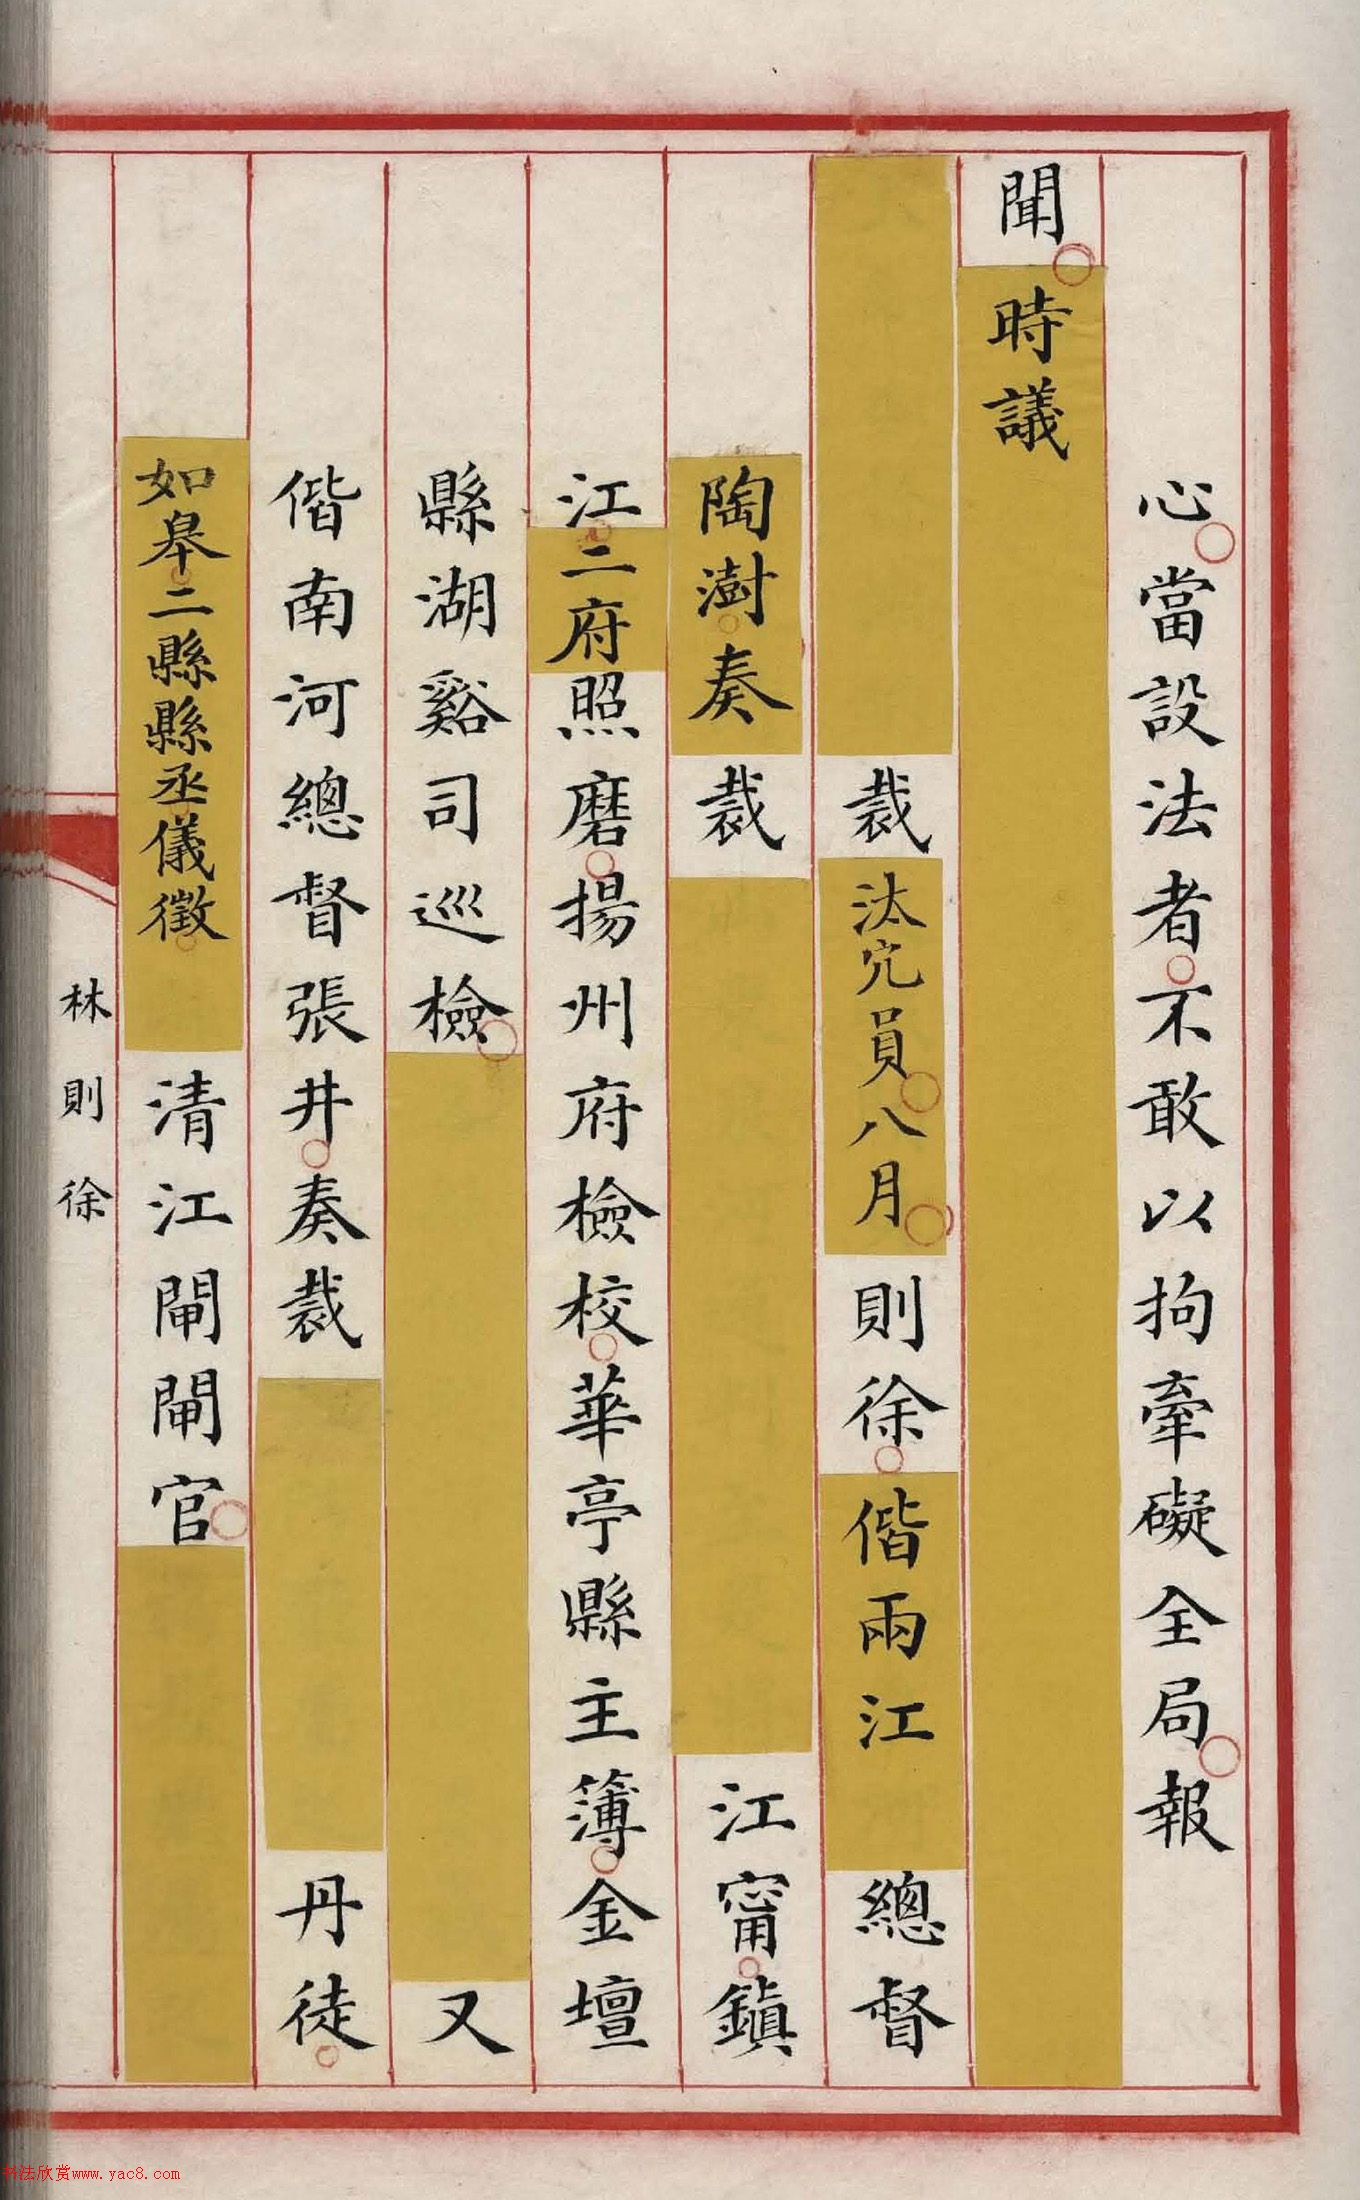 心當設法者不敢以拘牽礙全局報
聞時議
裁汰冗員八月則徐偕兩江總督
陶澍奏裁江甯鎮
江二府照磨揚州府檢校華亭縣主簿金壇
縣湖谿司巡檢又
偕南河總督張井奏裁丹徒
如皋二縣縣丞儀徵清江閘閘官
林則徐
书法欣赏www.yac8.com